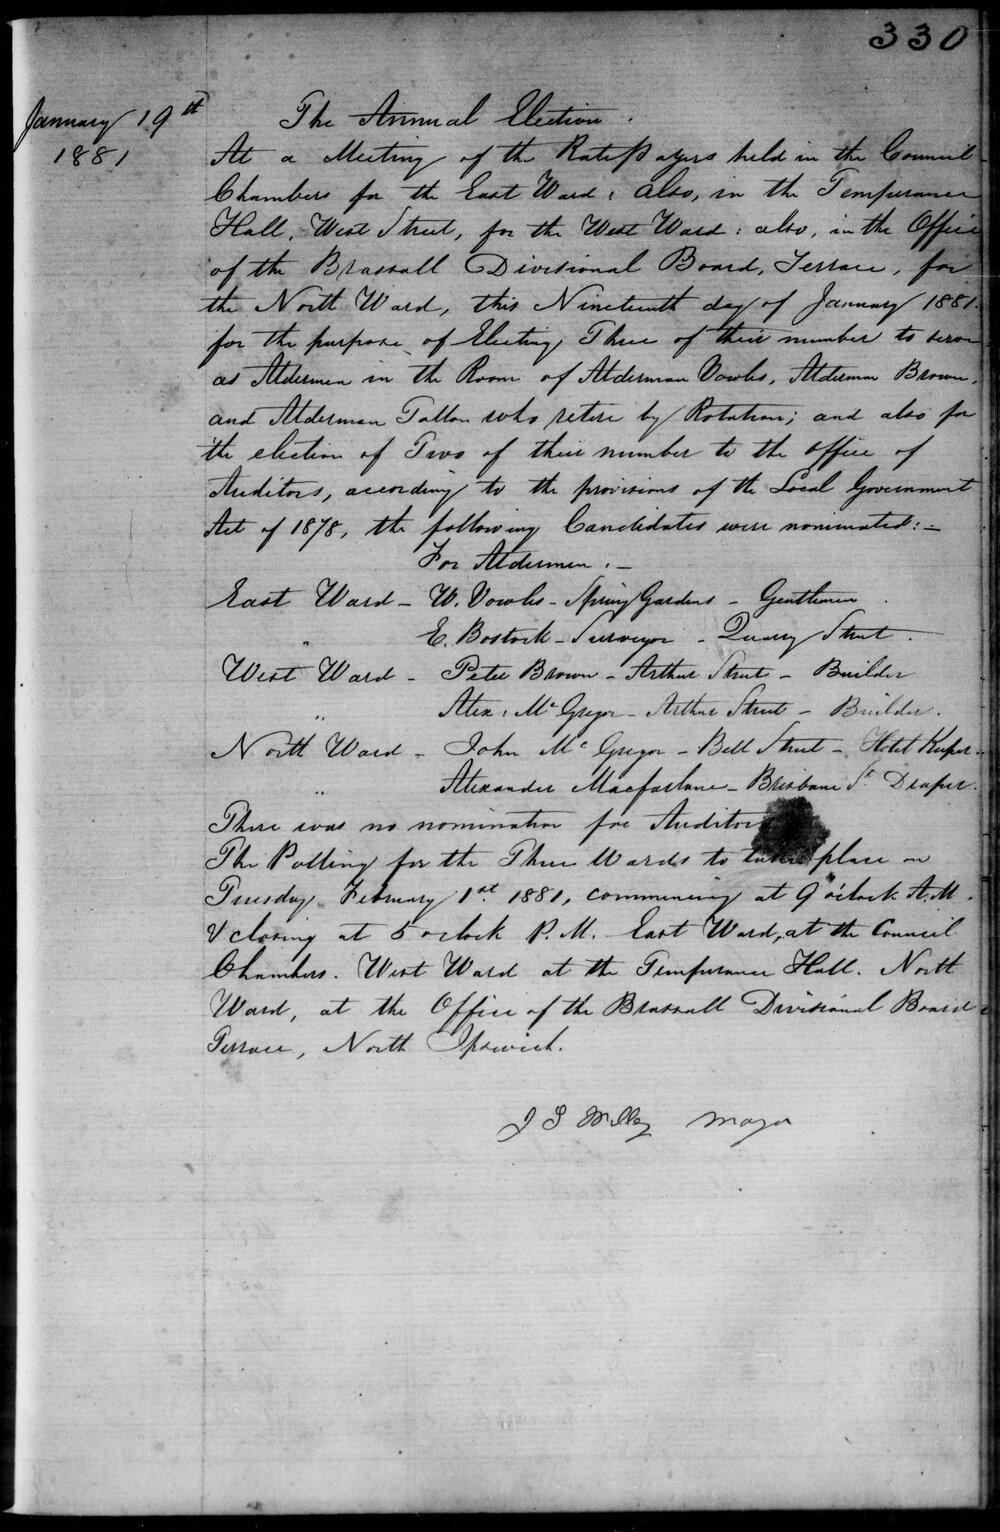 330
January 19th
1881
The Annual Election.
At a Meeting of the RatePayers held in the Council
Chambers for the East Ward; also, in the Temperance
Hall, West Street, for the West Ward: also, in the Office
of the Brassall Divisional Board, Terrace, for
the North Ward, this Nineteenth day of January 1881.
for the purpose of Electing Three of their number to serve
as Aldermen in the Room of Alderman Vowles, Alderman Brown,
and Alderman Tallon who retire by Rotation; and also for
the election of Two of their number to the office of
Auditors, according to the provisions of the Local Government
Act of 1878, the following Candidates were nominated:-
For Aldermen:-
East Ward - W. Vowles - Spring Gardens - Gentlemen.
" E. Bostock - Surveyor - Quarry Street.
West Ward - Peter Brown - Arthur Street - Builder
" Alex: Mc Gregor - Arthur Street - Builder.
North Ward - John Mc Gregor - Bell Street - Hotel Keeper.
" Alexander Macfarlane - Brisbane St. Draper.
There was no nomination for Auditors
The Polling for the Three Wards to take place on
Tuesday February 1st. 1881, commencing at 9 o'clock A.M.
& closing at 5 o'clock P.M. East Ward, at the Council
Chambers. West Ward at the Temperance Hall. North
Ward, at the Office of the Brassall Divisional Board
Terrace, North Ipswich.
Mayor